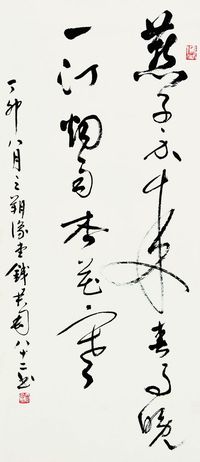 燕子不歸春事晚
一汀烟雨杏花寒
丁卯八月之朔豫堂錢君匋八十二書